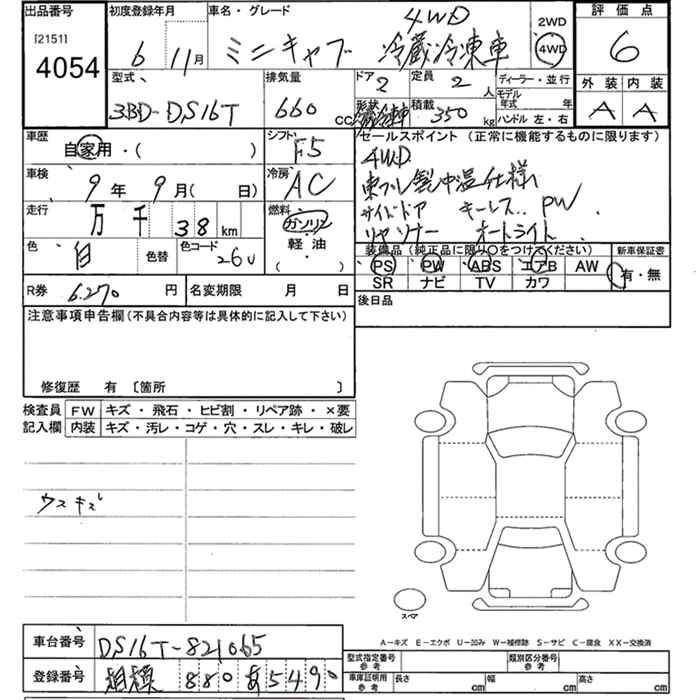 出品番号 初度登録年月 車名・グレード 2WD 評価点
[2151] 4054 6 11月 ミニキャブ 4WD 冷蔵冷凍車 4WD 6
型式 排気量 ドア 2 定員 2人 ディーラー・並行 外装 内装
3BD-DS16T 660 cc 形状 冷蔵冷凍車 積載 350 kg モデル年式 年 ハンドル 左・右 A A
車歴 自家用・( ) シフト F5 セールスポイント (正常に機能するものに限ります)
4WD
車検 9年 9月( 日) 冷房 AC 東プレ製中温仕様
走行 万 千 38 km 燃料 ガソリン サイドドア キーレス PW
色 白 色替 色コード 26U 軽・油 ( ) リヤソナー オートライト
装備品 (純正品に限り○をつけてください) 新車保証書
PS PW ABS エアB AW 有・無
SR ナビ TV カワ
R券 6,270円 名変期限 月 日 後日品
注意事項申告欄 (不具合内容等は具体的に記入して下さい)
修復歴 有 [箇所 ]
検査員 FW キズ・飛石・ヒビ割・リペア跡・×要
記入欄 内装 キズ・汚レ・コゲ・穴・スレ・キレ・破レ
ウスキズ
スペア
A－キズ E－エクボ U－凹み W－補修跡 S－サビ C－腐食 XX－交換済
車台番号 DS16T-821065
型式指定番号 参考 類別区分番号 参考
登録番号 相模 880 あ 5490
車庫証明用 参考 長さ cm 幅 cm 高さ cm